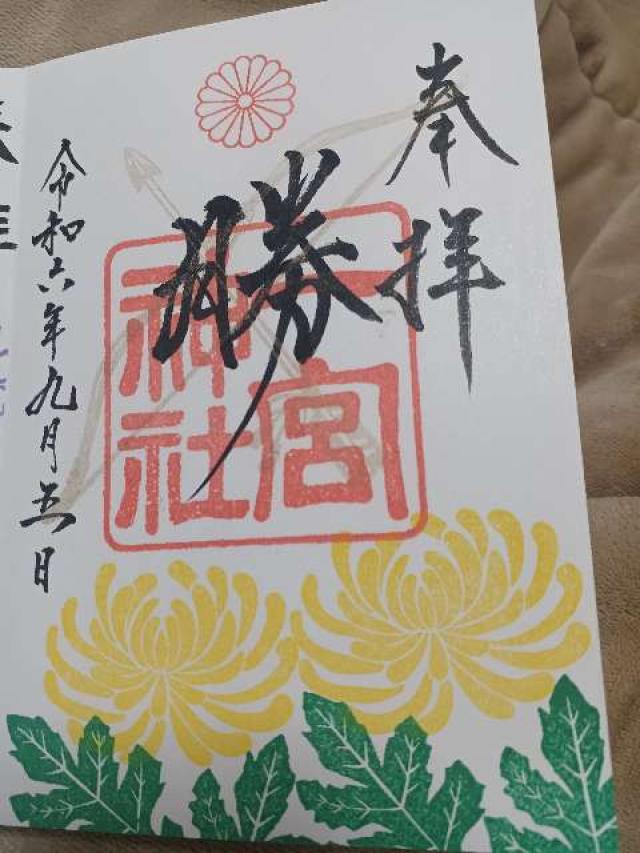 奉拝
勝
一宮
神社
令和六年九月五日